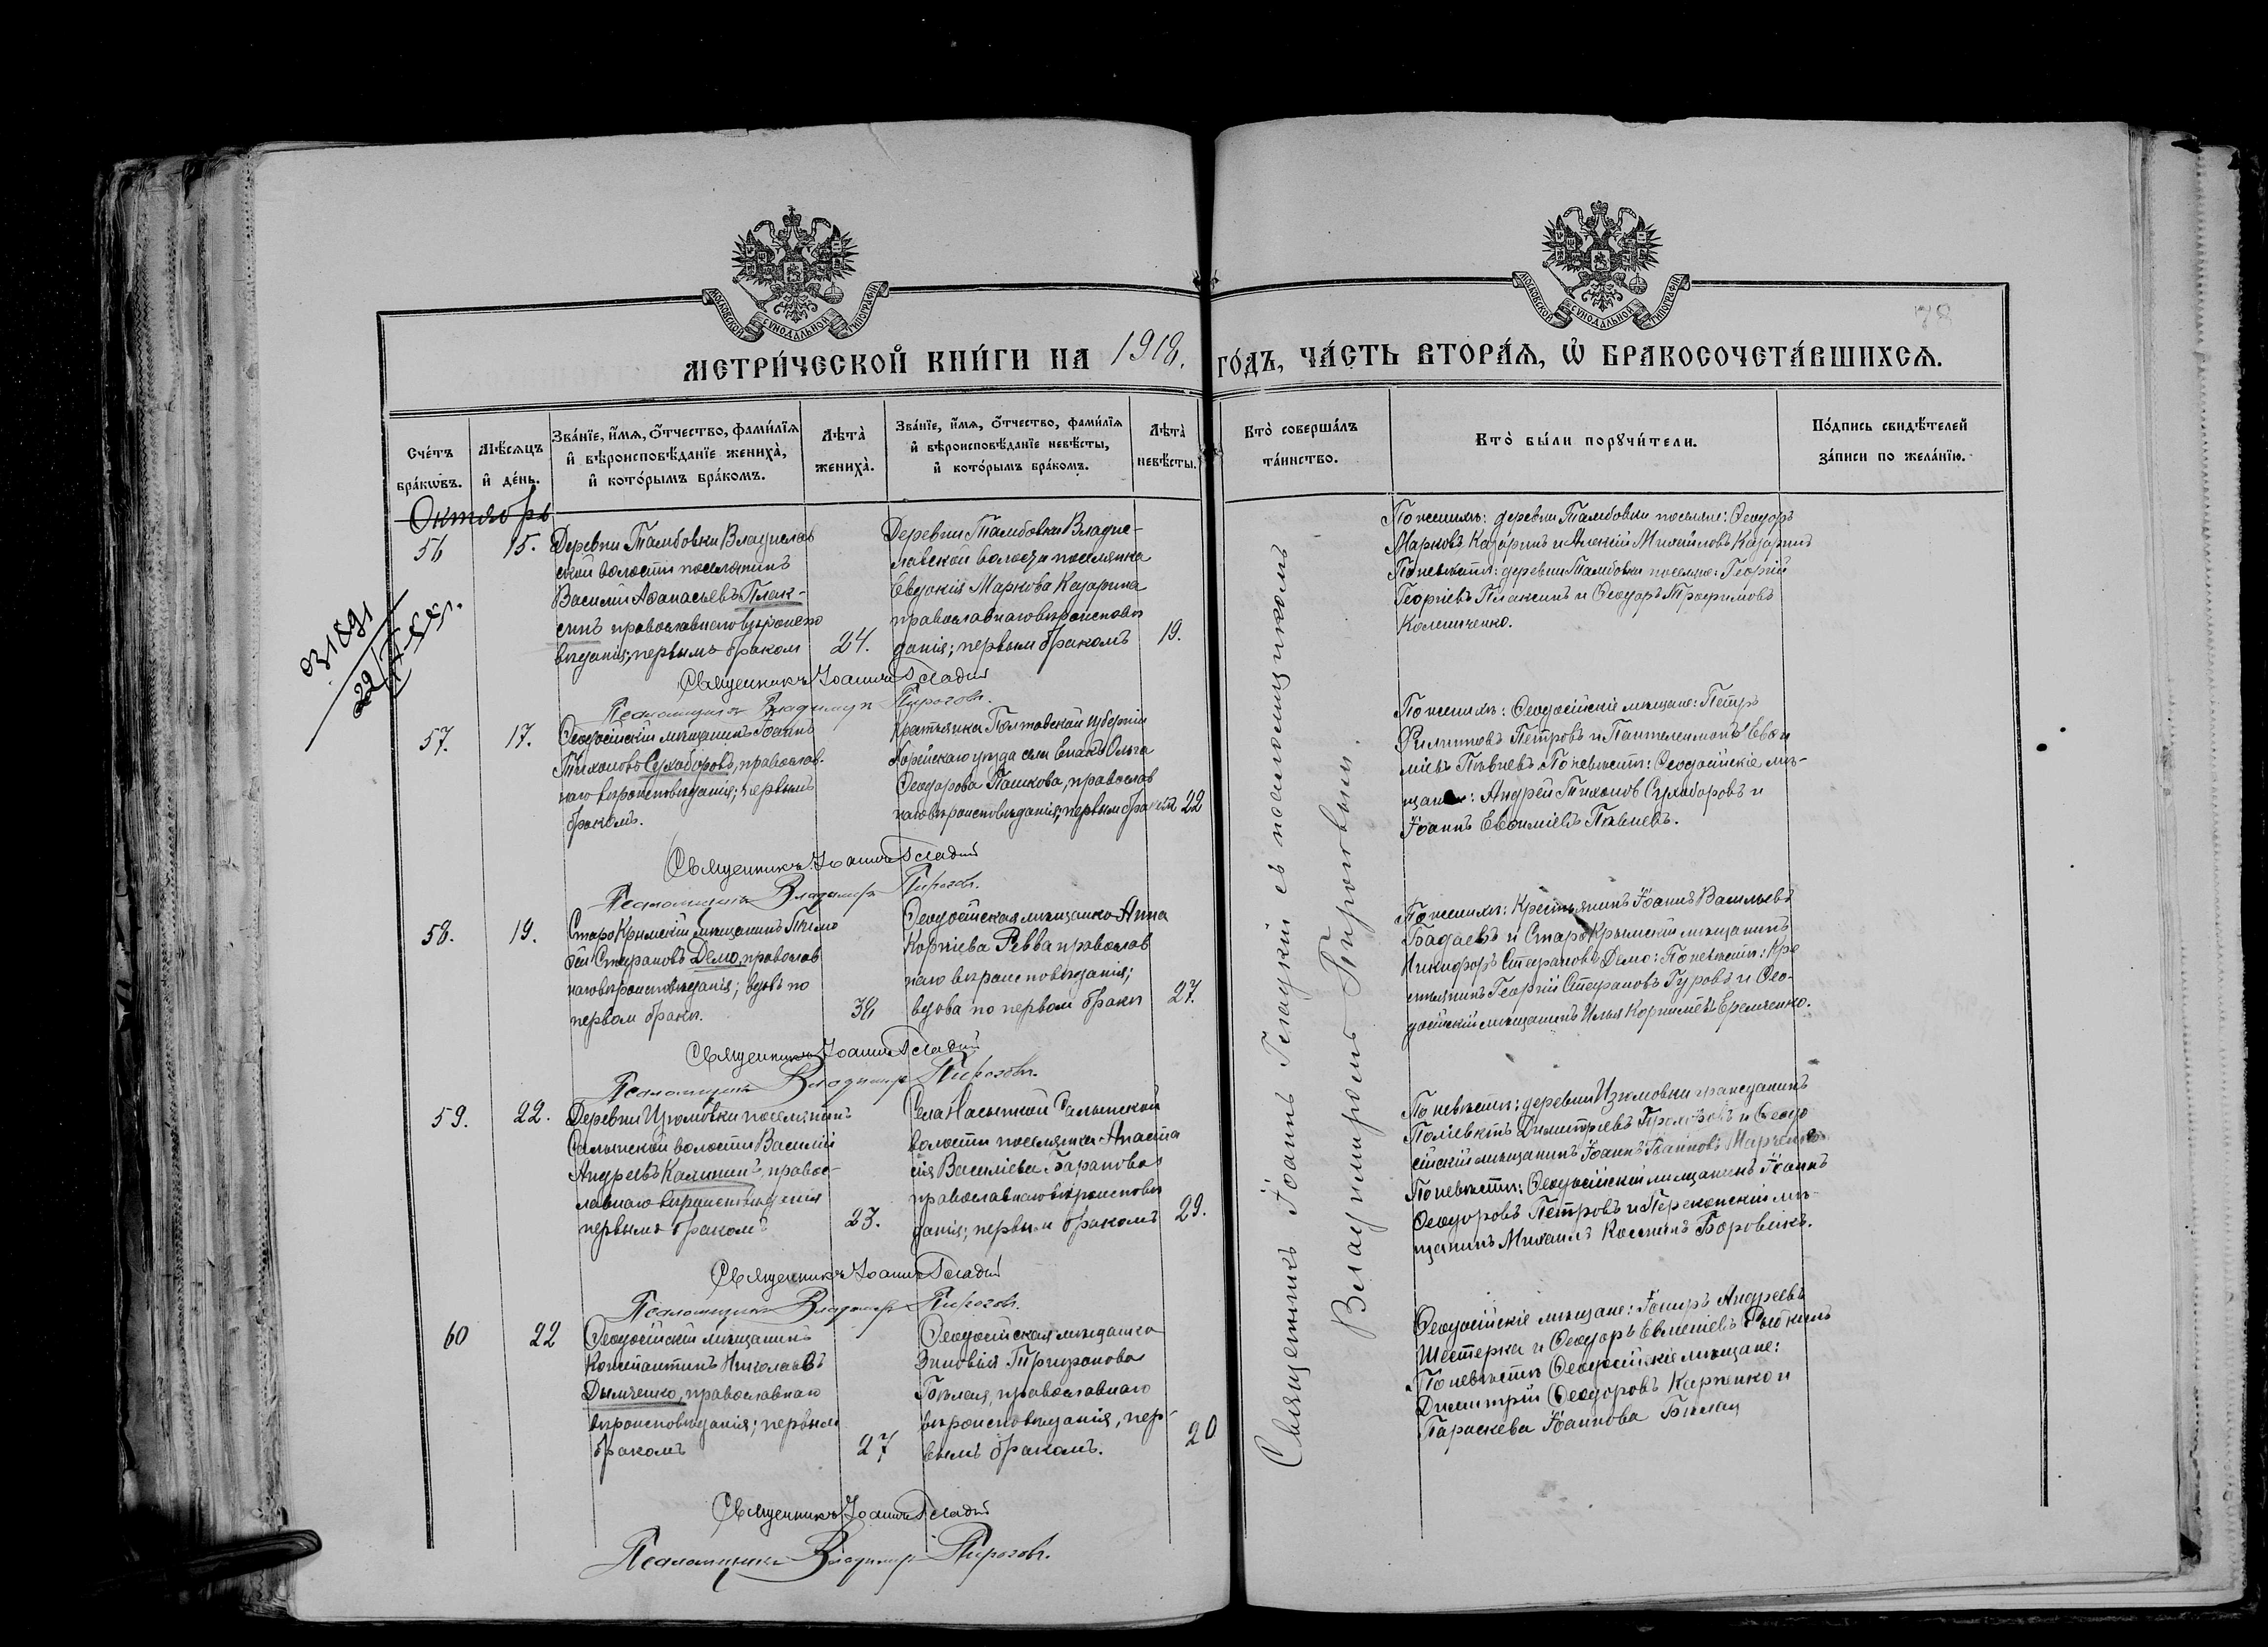 МОСКОВСКОЙ СѴНОДАЛЬНОЙ ТИПОГРАФІИ
МОСКОВСКОЙ СѴНОДАЛЬНОЙ ТИПОГРАФІИ
МЕТРИ́ЧЕСКОЙ КНИ́ГИ НА 1918. ГО́ДЪ, ЧА́СТЬ ВТОРА́Я, Ѡ҆ БРАКОСОЧЕТА́ВШИХСЯ.
Сче́тъ бра́кѡвъ.
Мѣ́сяцъ и҆ де́нь.
Зва́нїе, и҆́мя, ѻ҆́тчество, фами́лїя
и҆ вѣроисповѣ́данїе жениха̀,
и҆ кото́рымъ бра́комъ.
Лѣ́та̀ жениха̀.
Зва́нїе, и҆́мя, ѻ҆́тчество, фами́лїя
и҆ вѣроисповѣ́данїе невѣ́сты,
и҆ кото́рымъ бра́комъ.
Лѣ́та̀ невѣ́сты.
Кто̀ соверша́лъ
та́инство.
Кто̀ бы́ли порꙋчи́тели.
По́дпись свидѣ́телей
за́писи по жела́нїю.
Октябрь
56 15.
Деревни Тамбовки Владислав
ской волости поселянинъ
Василий Аѳанасьевъ Плак-
синъ православнаго вѣроиспо
вѣданія; первымъ браком
24.
Деревни Тамбовки Владис-
лавской волости поселянка
Евдокія Маркова Казарина
православнаго вѣроисповѣ
данія; первым бракомъ
19.
По женихѣ: деревни Тамбовки поселяне: Ѳеодоръ
Марковъ Казаринъ и Алексій Михайловъ Казаринъ
По невѣстѣ: деревни Тамбовки поселяне: Георгій
Георгіевъ Плаксинъ и Ѳеодоръ Трофимовъ
Священникъ Іоаннъ Гладкій
Псаломщикъ Владимир Пироговъ.
57. 17.
Ѳеодосійскій мѣщанинъ Іоаннъ
Тихоновъ Сухоборовъ, православ-
наго вѣроисповѣданія; первымъ
бракомъ.
Крестьянка Полтавской губерніи
уѣзда села Ольга
Ѳеодорова Пашкова, православ
наго вѣроисповѣданія; первым браком 22
По женихѣ: Ѳеодосійскіе мѣщане: Петръ
Филипповъ Петровъ и Пантелеимонъ Евѳи
міевъ Пивневъ. По невѣстѣ: Ѳеодосійскіе мѣ-
щане: Андрей Тихоновъ Сухоборовъ и
Іоаннъ Евѳиміевъ Пивневъ.
Священникъ Іоаннъ Гладкій
Псаломщикъ Владимиръ Пироговъ.
58. 19.
Старокрымскій мѣщанинъ Тимо
ѳей Стефановъ Демо, православ
наго вѣроисповѣданія; вдовъ по
первом бракѣ.
Ѳеодосійская мѣщанка Анна
Корнієва Ревва православ
наго вѣроисповѣданія;
вдова по первом бракѣ
27.
По женихѣ: Крестьянинъ Іоаннъ Васильевъ
Бадаевъ и Старокрымскій мѣщанинъ
Никифоръ Стефановъ Демо: По невѣстѣ: Кре
стьянинъ Георгій Стефановъ Гуровъ и Ѳео-
досійскій мѣщанинъ Илья Корниліевъ Еремченко.
Священникъ Іоаннъ Гладкій
Псаломщикъ Владимир Пироговъ.
59. 22.
Деревни Изюмовки поселянинъ
Салынской волости Василій
Андреевъ Калининъ, правос-
лавнаго вѣроисповѣданія
первымъ бракомъ
23.
Села Насыпкой Салынской
волости поселянка Анаста
сія Василіева Баранова
православнаго вѣроисповѣ
данія; первым бракомъ
29.
По невѣстѣ: деревни Изюмовки гражданинъ
Поліевктъ Димитріевъ и Ѳеодо
сійскій мѣщанинъ Іоаннъ Іоанновъ Марченко
По невѣстѣ: Ѳеодосійскій мѣщанинъ Іоаннъ
Ѳеодоровъ Петровъ и Перекопскій мѣ-
щанинъ Михаилъ Косминъ Боровикъ.
Священникъ Іоаннъ Гладкій
Псаломщикъ Владимир Пироговъ.
60 22
Ѳеодосійскій мѣщанинъ
Константинъ Николаевъ
Дымченко, православнаго
вѣроисповѣданія; первым
бракомъ
27
Ѳеодосійская мѣщанка
Зиновія Трифонова
Бѣлая, православнаго
вѣроисповѣданія, пер-
вымъ бракомъ.
20
Ѳеодосійскіе мѣщане: Андреевъ
Шестерка и Ѳеодоръ Евменіевъ Рыбкинъ
По невѣстѣ Ѳеодосійскіе мѣщане:
Димитрій Ѳеодоровъ Карпенко и
Параскева Іоаннова Бѣлая
Священникъ Іоаннъ Гладкій
Псаломщикъ Владимир Пироговъ.
Священникъ Іоаннъ Гладкій съ псаломщикомъ
Владимиромъ Пироговымъ.